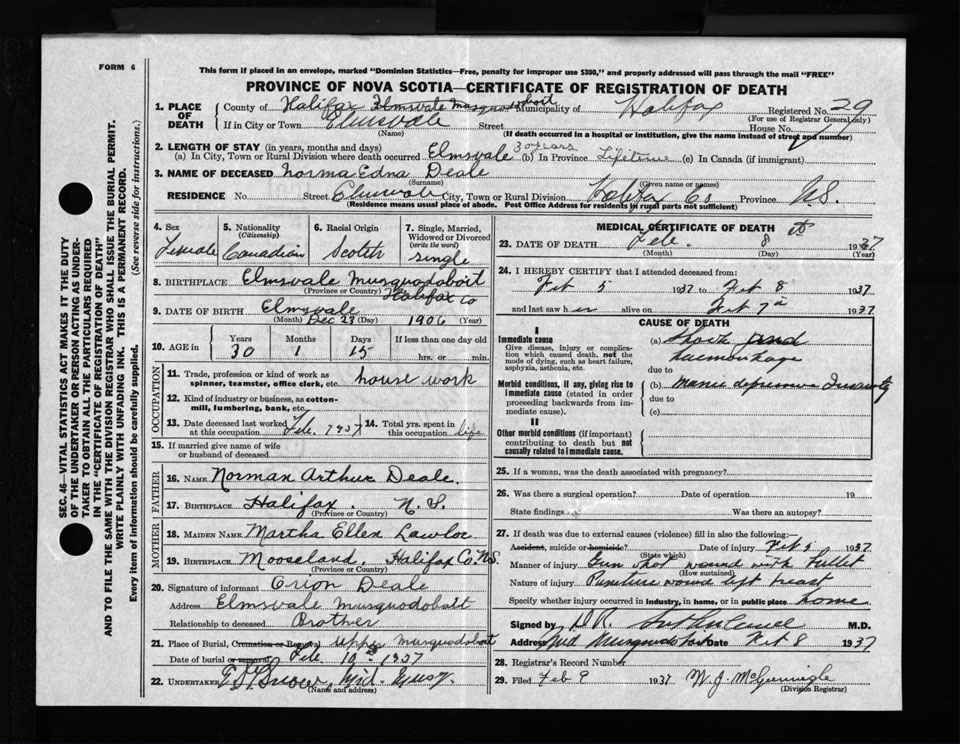 FORM 6
This form if placed in an envelope, marked "Dominion Statistics—Free, penalty for improper use $300," and properly addressed will pass through the mail "FREE"
PROVINCE OF NOVA SCOTIA—CERTIFICATE OF REGISTRATION OF DEATH
1. PLACE OF DEATH County of Halifax Elmsvale Musquodoboit Municipality of Halifax Registered No. 29
(For use of Registrar General only)
If in City or Town Elmsvale Street House No.
(Name) (If death occurred in a hospital or institution, give the name instead of street and number)
2. LENGTH OF STAY (in years, months and days)
(a) In City, Town or Rural Division where death occurred Elmsvale 30 years (b) In Province Lifetime (c) In Canada (if immigrant)
3. NAME OF DECEASED Norma Edna Deale
(Surname) (Given name or names)
RESIDENCE No. Street Elmsvale City, Town or Rural Division Halifax Co Province N.S.
(Residence means usual place of abode. Post Office Address for residents in rural parts not sufficient)
4. Sex Female
5. Nationality (Citizenship) Canadian
6. Racial Origin Scotch
7. Single, Married, Widowed or Divorced (write the word) single
8. BIRTHPLACE Elmsvale Musquodoboit
(Province or Country) Halifax Co
9. DATE OF BIRTH Elmsvale
(Month) Dec 23 (Day) 1906 (Year)
10. AGE in Years 30 Months 1 Days 15 If less than one day old
hrs. or min.
OCCUPATION
11. Trade, profession or kind of work as spinner, teamster, office clerk, etc. house work
12. Kind of industry or business, as cotton-mill, lumbering, bank, etc.
13. Date deceased last worked at this occupation Feb. 1937
14. Total yrs. spent in this occupation life
15. If married give name of wife or husband of deceased
FATHER
16. NAME Norman Arthur Deale
17. BIRTHPLACE Halifax N.S.
(Province or Country)
MOTHER
18. MAIDEN NAME Martha Ellen Lawlor
19. BIRTHPLACE Mooseland, Halifax Co. N.S.
(Province or Country)
20. Signature of informant Orion Deale
Address Elmsvale Musquodoboit
Relationship to deceased Brother
21. Place of Burial, Cremation or Removal Upper Musquodoboit
Date of burial or removal Feb. 10th 1937
22. UNDERTAKER Snow, Mid. Musq.
(Name and address)
MEDICAL CERTIFICATE OF DEATH
23. DATE OF DEATH Feb. 8th 1937
(Month) (Day) (Year)
24. I HEREBY CERTIFY that I attended deceased from:
Feb 5 1937 to Feb 8 1937
and last saw her alive on Feb 7th 1937
CAUSE OF DEATH
I
Immediate cause
Give disease, injury or complication which caused death, not the mode of dying, such as heart failure, asphyxia, asthenia, etc.
(a) Shock and haemorrhage
due to
Morbid conditions, if any, giving rise to immediate cause (stated in order proceeding backwards from immediate cause).
(b) Manic depressive Insanity
due to
(c)
II
Other morbid conditions (if important) contributing to death but not causally related to immediate cause.
25. If a woman, was the death associated with pregnancy?
26. Was there a surgical operation? Date of operation 19
State findings Was there an autopsy?
27. If death was due to external causes (violence) fill in also the following:—
Accident, suicide or homicide? Date of injury Feb 5 1937
(State which)
Manner of injury Gun shot wound with bullet
(How sustained)
Nature of injury Puncture wound left breast
Specify whether injury occurred in industry, in home, or in public place home
Signed by D.R. M.D.
Address Mid Musquodoboit Date Feb 8 1937
28. Registrar's Record Number
29. Filed Feb 9 1937 W. J. McGunnigle
(Division Registrar)
SEC. 46—VITAL STATISTICS ACT MAKES IT THE DUTY
OF THE UNDERTAKER OR PERSON ACTING AS UNDER-
TAKER TO OBTAIN ALL THE PARTICULARS REQUIRED
IN THE "CERTIFICATE OF REGISTRATION OF DEATH"
AND TO FILE THE SAME WITH THE DIVISION REGISTRAR WHO SHALL ISSUE THE BURIAL PERMIT.
WRITE PLAINLY WITH UNFADING INK. THIS IS A PERMANENT RECORD.
Every item of information should be carefully supplied. (See reverse side for instructions.)